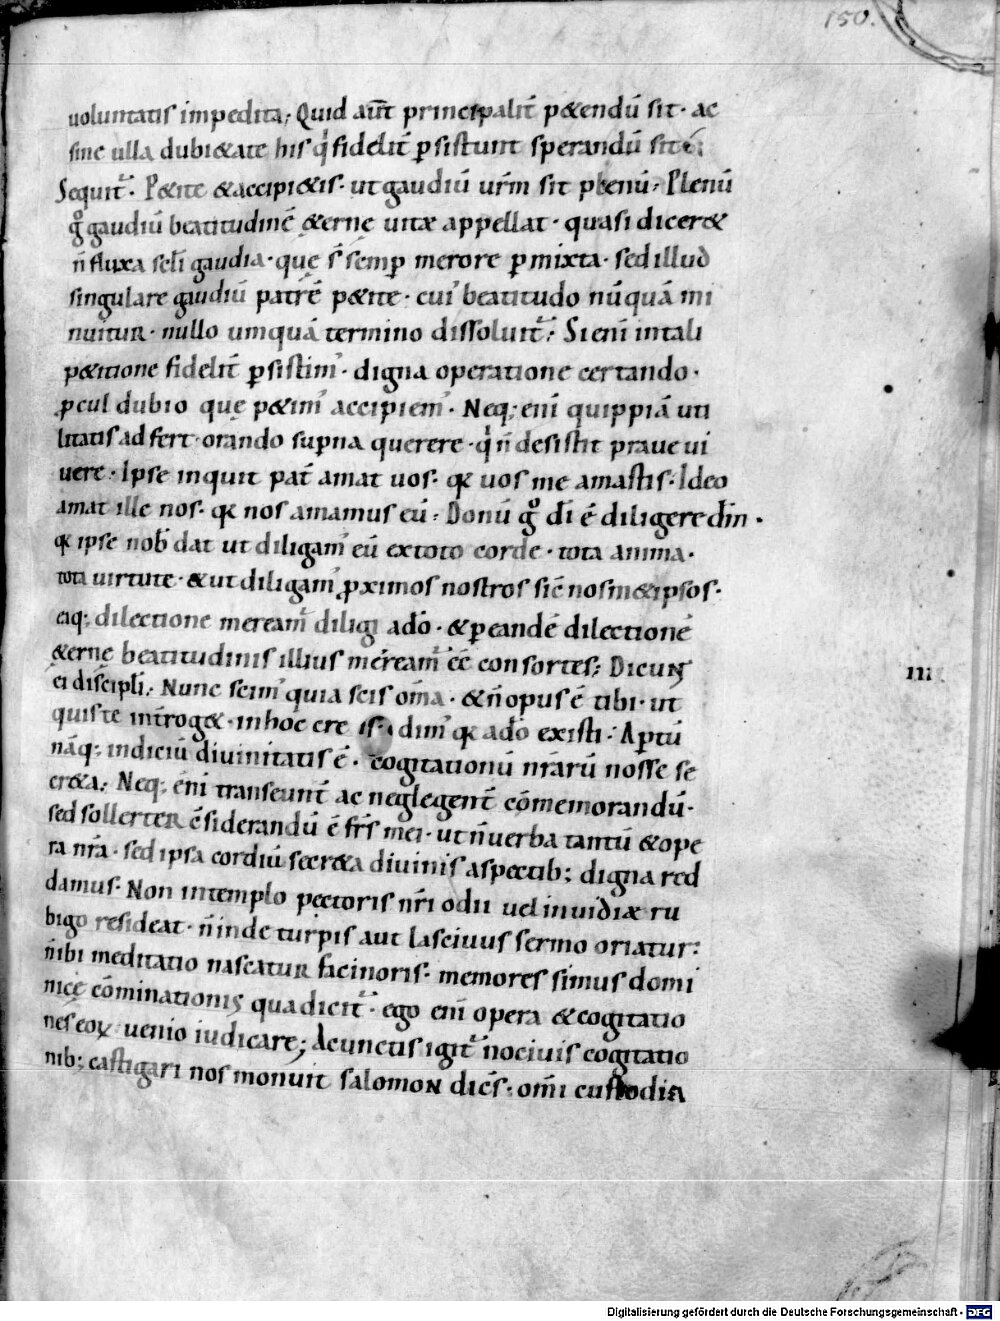 150.
uoluntatis impedita; Quid aut̄ principalit̄ p&endū sit· ac
sine ulla dubi&ate his q̍ fidelit̄ p̱sistunt sperandū sit;
Sequit᷒· P&ite &accipi&is· ut gaudiū ur̄m sit plenū; Plenū
g̊ gaudiū beatitudinē &ernę uitæ appellat· quasi dicer&
n̄ fluxa sc̄li gaudia· que s̄ semp̱ merore p̱mixta· sed illud
singulare gaudiū patrē p&ite· cui᷒ beatitudo nūquā mi
nuitur· nullo umquā termino dissoluit᷒; Si eni᷒ in tali
p&itione fidelit̄ p̱sistim᷒· digna operatione certando·
ꝓcul dubio que p&im᷒ accipiem᷒· Neq; eni᷒ quippiā uti
litatis adfert orando supna querere· q̍ n̄ desistit praue ui
uere· Ipse inquit pat̄ amat uos· qꝛ uos me amastis· Ideo
amat ille nos· qꝛ nos amamus eū; Donū g̊ dī ē diligere dm̄·
qꝛ ipse nob̄ dat ut diligam᷒ eū ex toto corde· tota anima·
tota uirtute· & ut diligam᷒ ꝓximos nostros sic̄ nosm&ipsos·
eaq; dilectione meream᷒ diligi a dō· & p̱ eandē dilectionē
&ernę beatitudinis illius meream᷒ ēē consortes; Dicunt
ei discipli̅; Nunc scim᷒ quia scis om̄a· & n̄ opus ē tibi· ut
quis te int̄rog&· in hoc cre is· dim᷒ qꝛ a dō existi; Ap̱tū
nāq; indiciū diuinitatis ē· cogitationū nr̄arū nosse se
cr&a; Neq; eni᷒ transeunt̄ ac neglegent̄ cōmemorandū·
sed sollerter c̄siderandū ē fr̄s mei· ut n̄ uerba tantū & ope
ra nr̄a· sed ipsa cordiū secr&a diuinis aspectib; digna red
damus· Non in templo pectoris nr̄i odii uel inuidiæ ru
bigo resideat· n̄ inde turpis aut lasciuus sermo oriatur;
n̄ ibi meditatio nascatur facinoris· memores simus domi
nicę cōminationis qua dicit᷒· ego eni᷒ opera & cogitatio
nes eoꝝ uenio iudicare; A cunctis igit᷒ nociuis cogitatio
nib; castigari nos monuit salomon dicēs· omī custodia
III
Digitalisierung gefördert durch die Deutsche Forschungsgemeinschaft - DFG